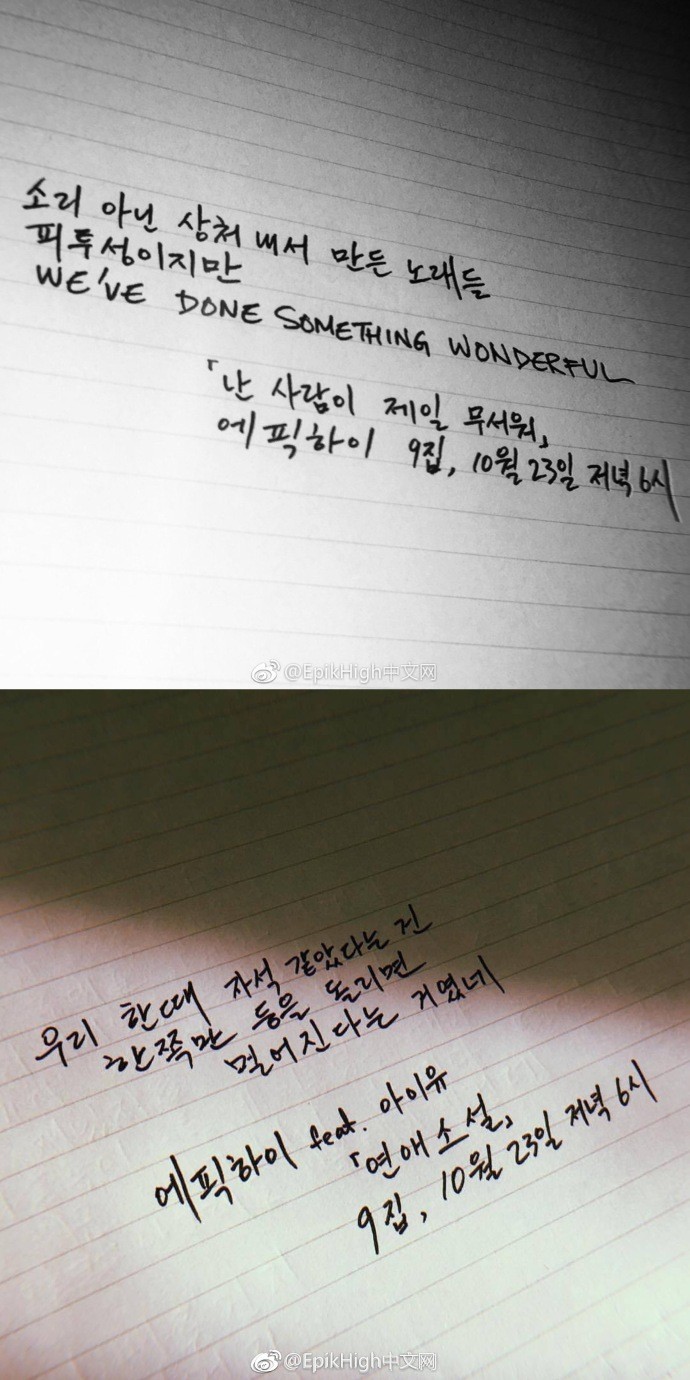 소리 아닌 상처 내서 만든 노래들
피투성이지만
WE'VE DONE SOMETHING WONDERFUL
「난 사람이 제일 무서워」
에픽하이 9집, 10월 23일 저녁 6시
@EpikHigh中文网
우리 한때 자석 같았다는 건
한쪽만 등을 돌리면
멀어진다는 거였네
에픽하이 feat. 아이유
「연애소설」
9집, 10월 23일 저녁 6시
@EpikHigh中文网